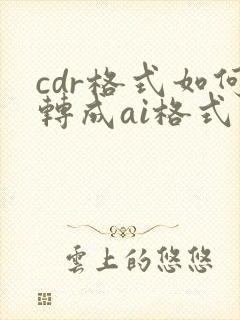 cdr格式如何
轉成ai格式
雲上的悠悠